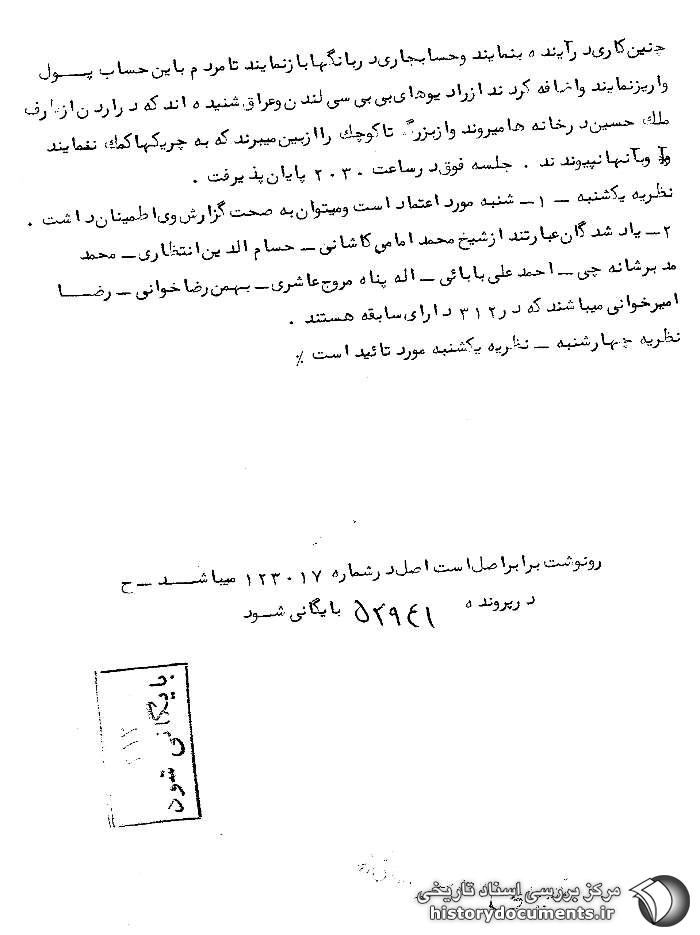 چنین کاری در آینده بنمایند و حسابجاری در بانگها باز نمایند تا مردم باین حساب پول
واریز نمایند و اضافه کردند از رادیوهای بی بی سی لندن و عراق شنیده اند که در اردن از طرف
ملک حسین درخانه ها میروند و از بزرگ تا کوچک را از بین میبرند که به چریکها کمک نفمایند
و بآنها نپیوندند . جلسه فوق در ساعت ۲۰۳۰ پایان پذیرفت .
نظریه یکشنبه ـ ۱ـ شنبه مورد اعتماد است و میتوان به صحت گزارش وی اطمینان داشت .
۲ـ یاد شدگان عبارتند از شیخ محمد امامی کاشانی ـ حسام الدین انتظاری ـ محمد
مدبرشانه چی ـ احمد علی بابائی ـ اله پناه مروج عاشری ـ بهمن رضاخوانی ـ رضا
امیرخوانی میباشند که در ۳۱۲ دارای سابقه هستند .
نظریه چهارشنبه ـ نظریه یکشنبه مورد تائید است ٪
رونوشت برابر اصل است اصل در شماره ۱۲۳۰۱۷ میباشد ـ ح
در پرونده ۵۲۹۴۱ بایگانی شود
بایگانی شود
۳۱۲
مرکز بررسی اسناد تاریخی
historydocuments.ir